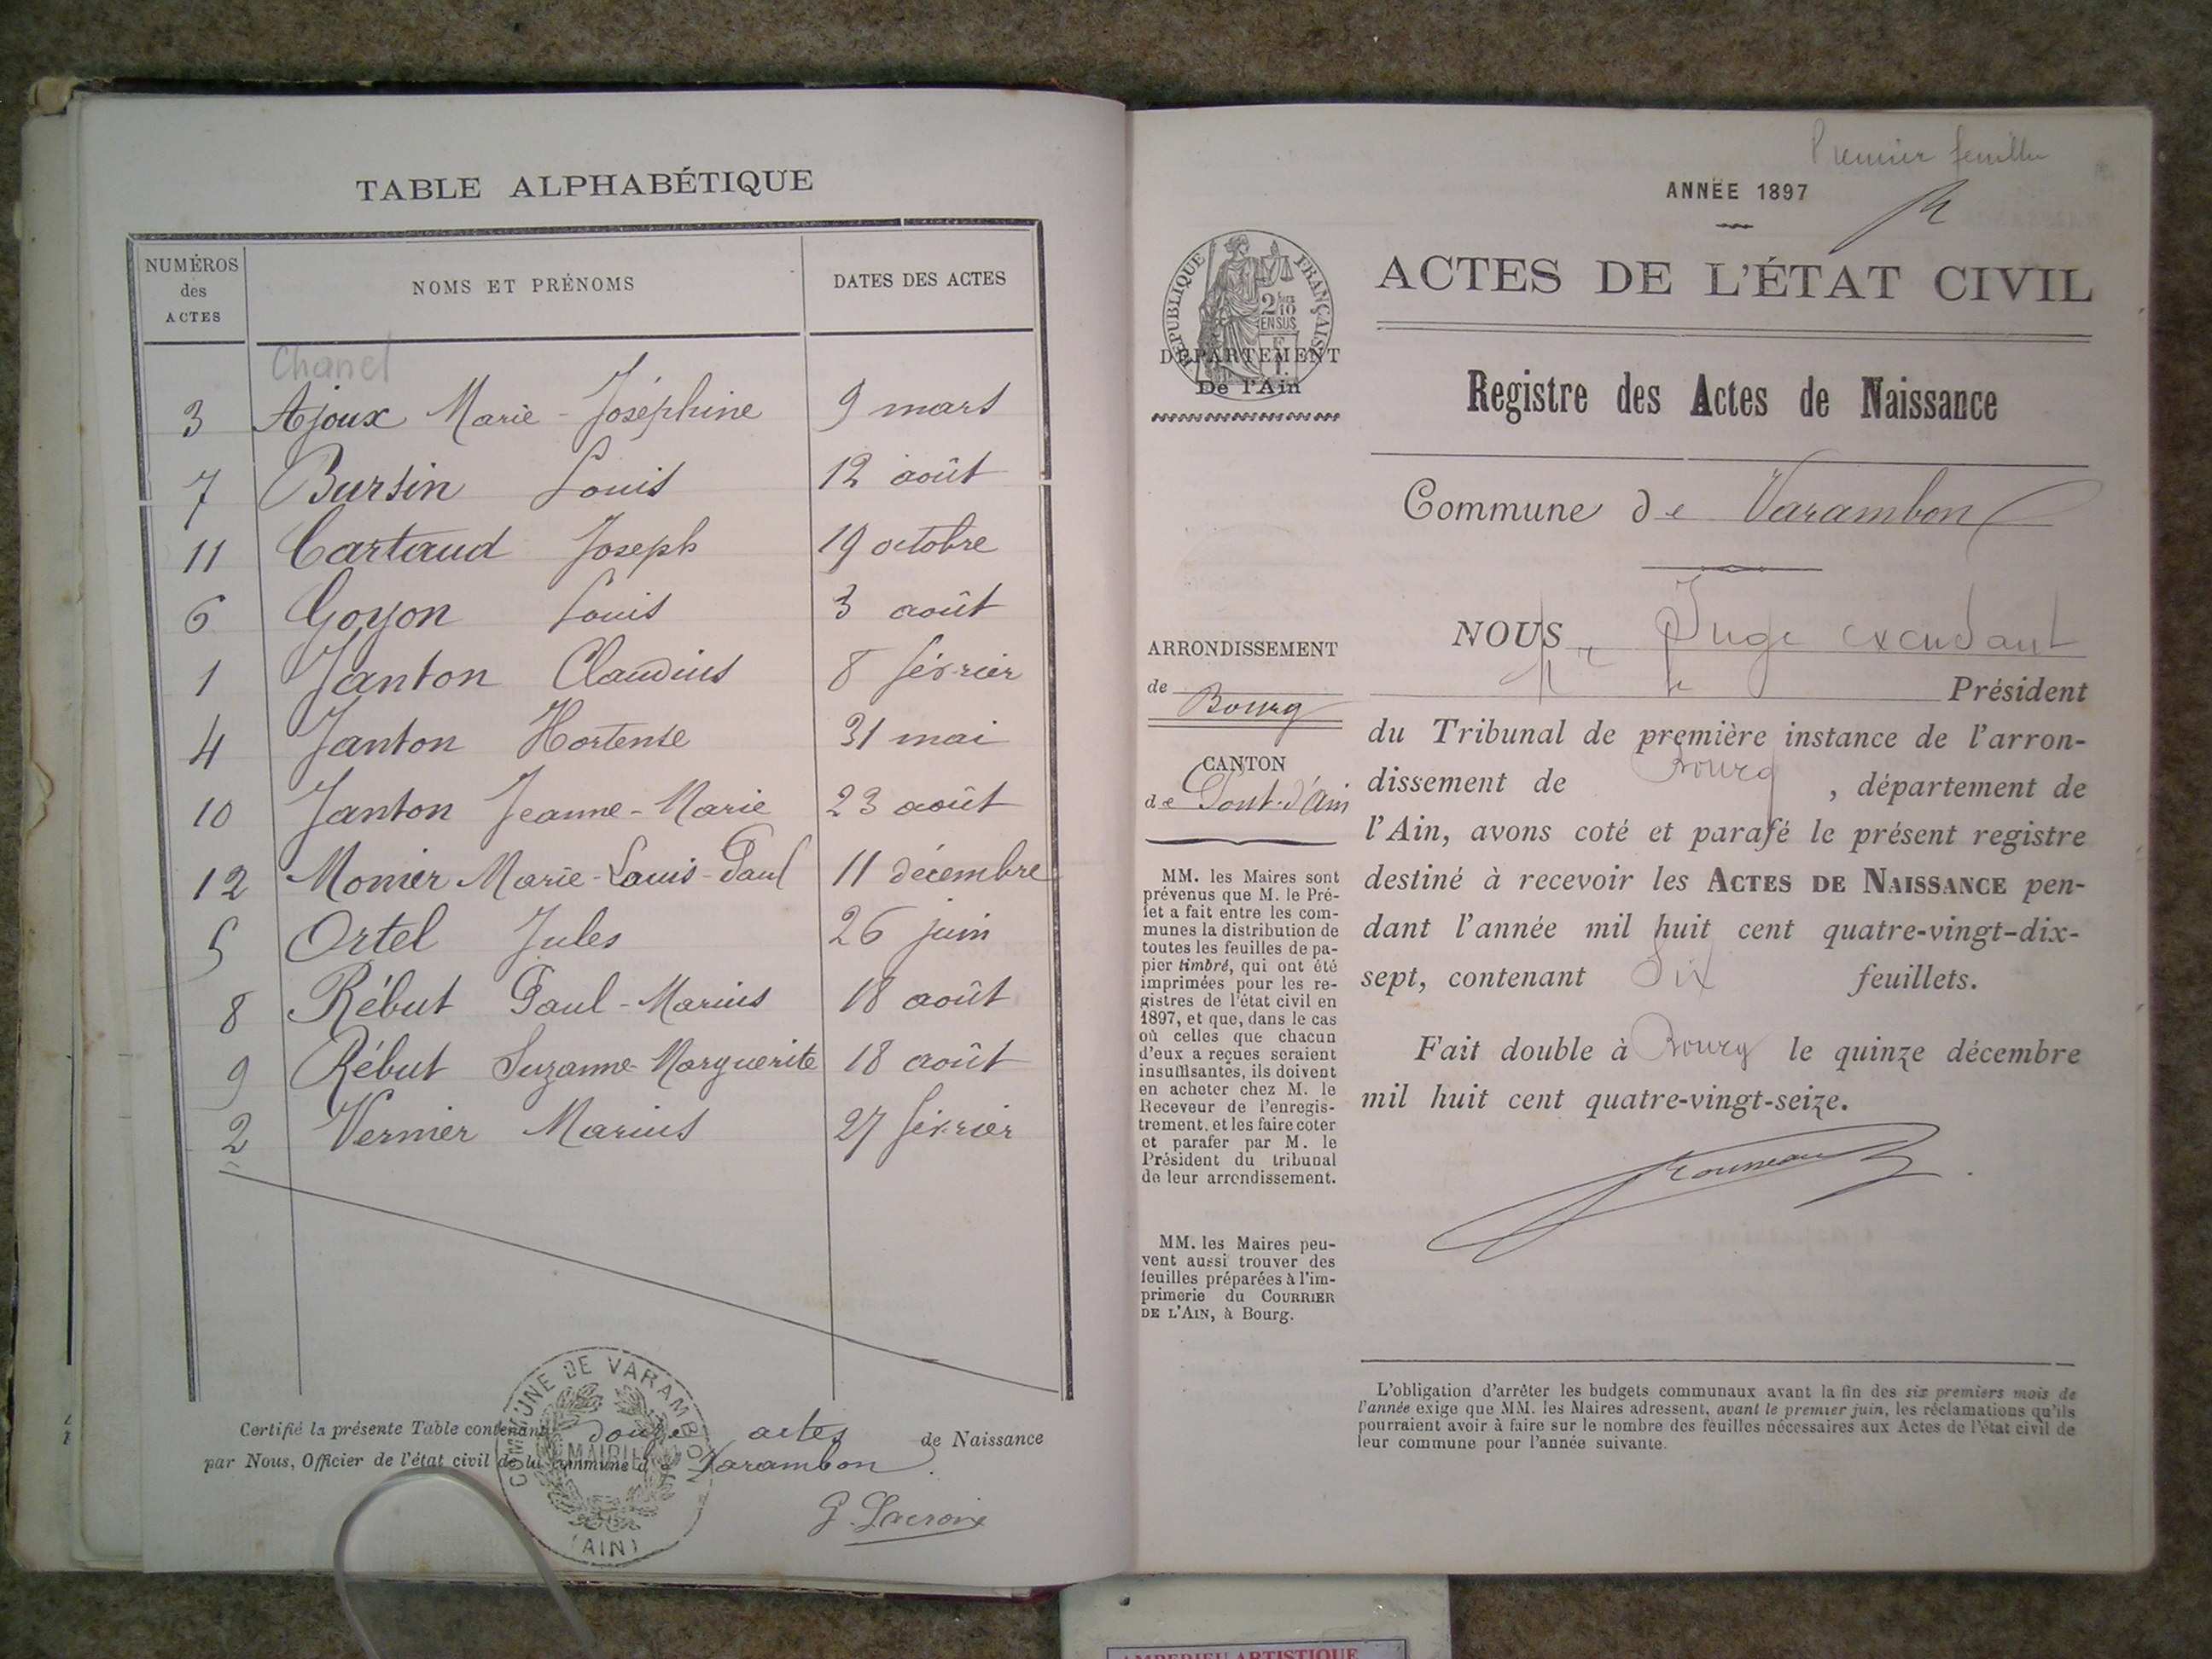 TABLE ALPHABÉTIQUE
NUMÉROS des ACTES NOMS ET PRÉNOMS DATES DES ACTES
Chanel
3 Ajoux Marie-Joséphine 9 mars
7 Bursin Louis 12 août
11 Cartaud Joseph 19 octobre
6 Goyon Louis 3 août
1 Janton Claudius 8 février
4 Janton Hortense 31 mai
10 Janton Jeanne-Marie 23 août
12 Monier Marie-Louis-Paul 11 décembre
5 Ortel Jules 26 juin
8 Rébut Paul-Marius 18 août
9 Rébut Suzanne-Marguerite 18 août
2 Vernier Marius 27 février
Certifié la présente Table contenant douze actes de Naissance
par Nous, Officier de l'état civil de la commune de Varambon
COMMUNE DE VARAMBON
MAIRIE
(AIN)
G. Lacroix
Premier feuillet
ANNÉE 1897
ACTES DE L'ÉTAT CIVIL
RÉPUBLIQUE FRANÇAISE
DÉPARTEMENT
De l'Ain
Registre des Actes de Naissance
Commune de Varambon
ARRONDISSEMENT
de Bourg
CANTON
de Pont-d'Ain
MM. les Maires sont
prévenus que M. le Pré-
fet a fait entre les com-
munes la distribution de
toutes les feuilles de pa-
pier timbré, qui ont été
imprimées pour les re-
gistres de l'état civil en
1897, et que, dans le cas
où celles que chacun
d'eux a reçues seraient
insuffisantes, ils doivent
en acheter chez M. le
Receveur de l'enregis-
trement, et les faire coter
et parafer par M. le
Président du tribunal
de leur arrondissement.
MM. les Maires peu-
vent aussi trouver des
feuilles préparées à l'im-
primerie du COURRIER
DE L'AIN, à Bourg.
NOUS Juge
Président
du Tribunal de première instance de l'arron-
dissement de Bourg, département de
l'Ain, avons coté et parafé le présent registre
destiné à recevoir les ACTES DE NAISSANCE pen-
dant l'année mil huit cent quatre-vingt-dix-
sept, contenant Six feuillets.
Fait double à Bourg le quinze décembre
mil huit cent quatre-vingt-seize.
L'obligation d'arrêter les budgets communaux avant la fin des six premiers mois de
l'année exige que MM. les Maires adressent, avant le premier juin, les réclamations qu'ils
pourraient avoir à faire sur le nombre des feuilles nécessaires aux Actes de l'état civil de
leur commune pour l'année suivante.